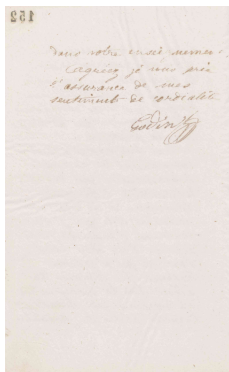 152
dans votre
Agréez je vous prie
l'assurance de mes
sentiments de cordialité
Godin